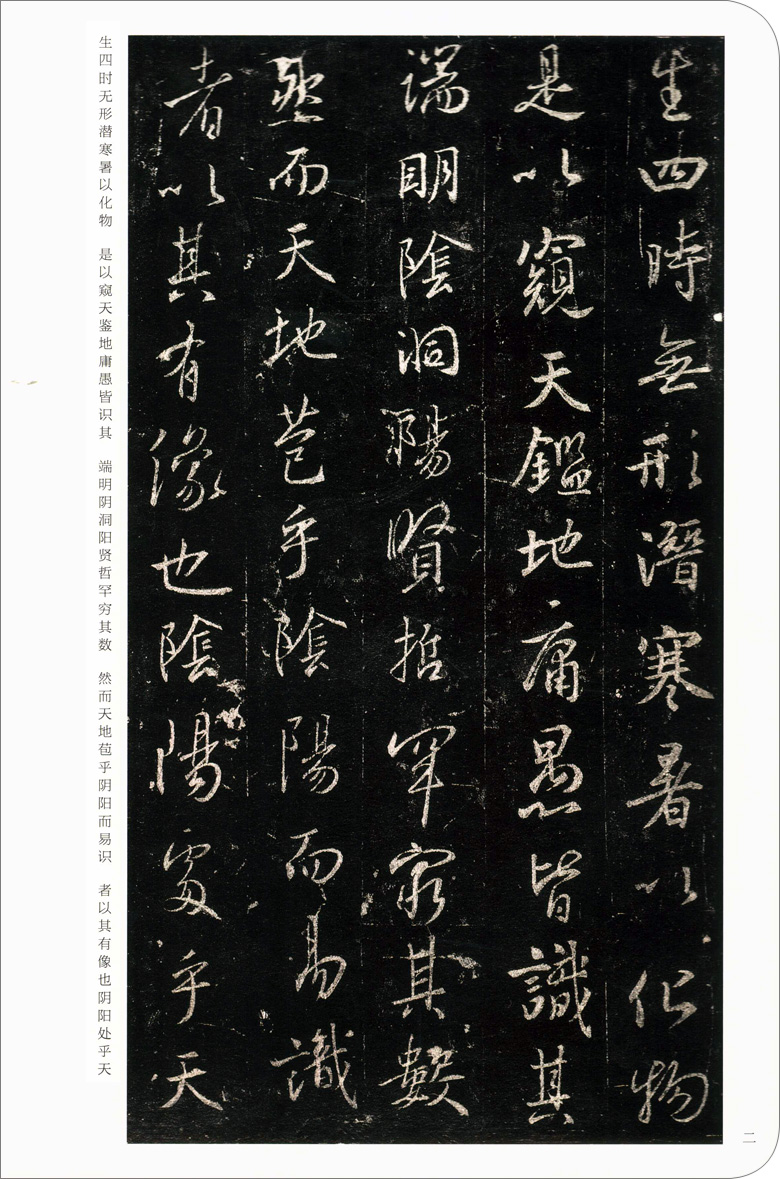 生四時無形潛寒暑以化物
是以窺天鑑地庸愚皆識其
端明陰洞陽賢哲罕窮其數
然而天地苞乎陰陽而易識
者以其有像也陰陽處乎天
生四时无形潜寒暑以化物 是以窥天鉴地庸愚皆识其 端明阴洞阳贤哲罕穷其数 然而天地苞乎阴阳而易识 者以其有像也阴阳处乎天
二